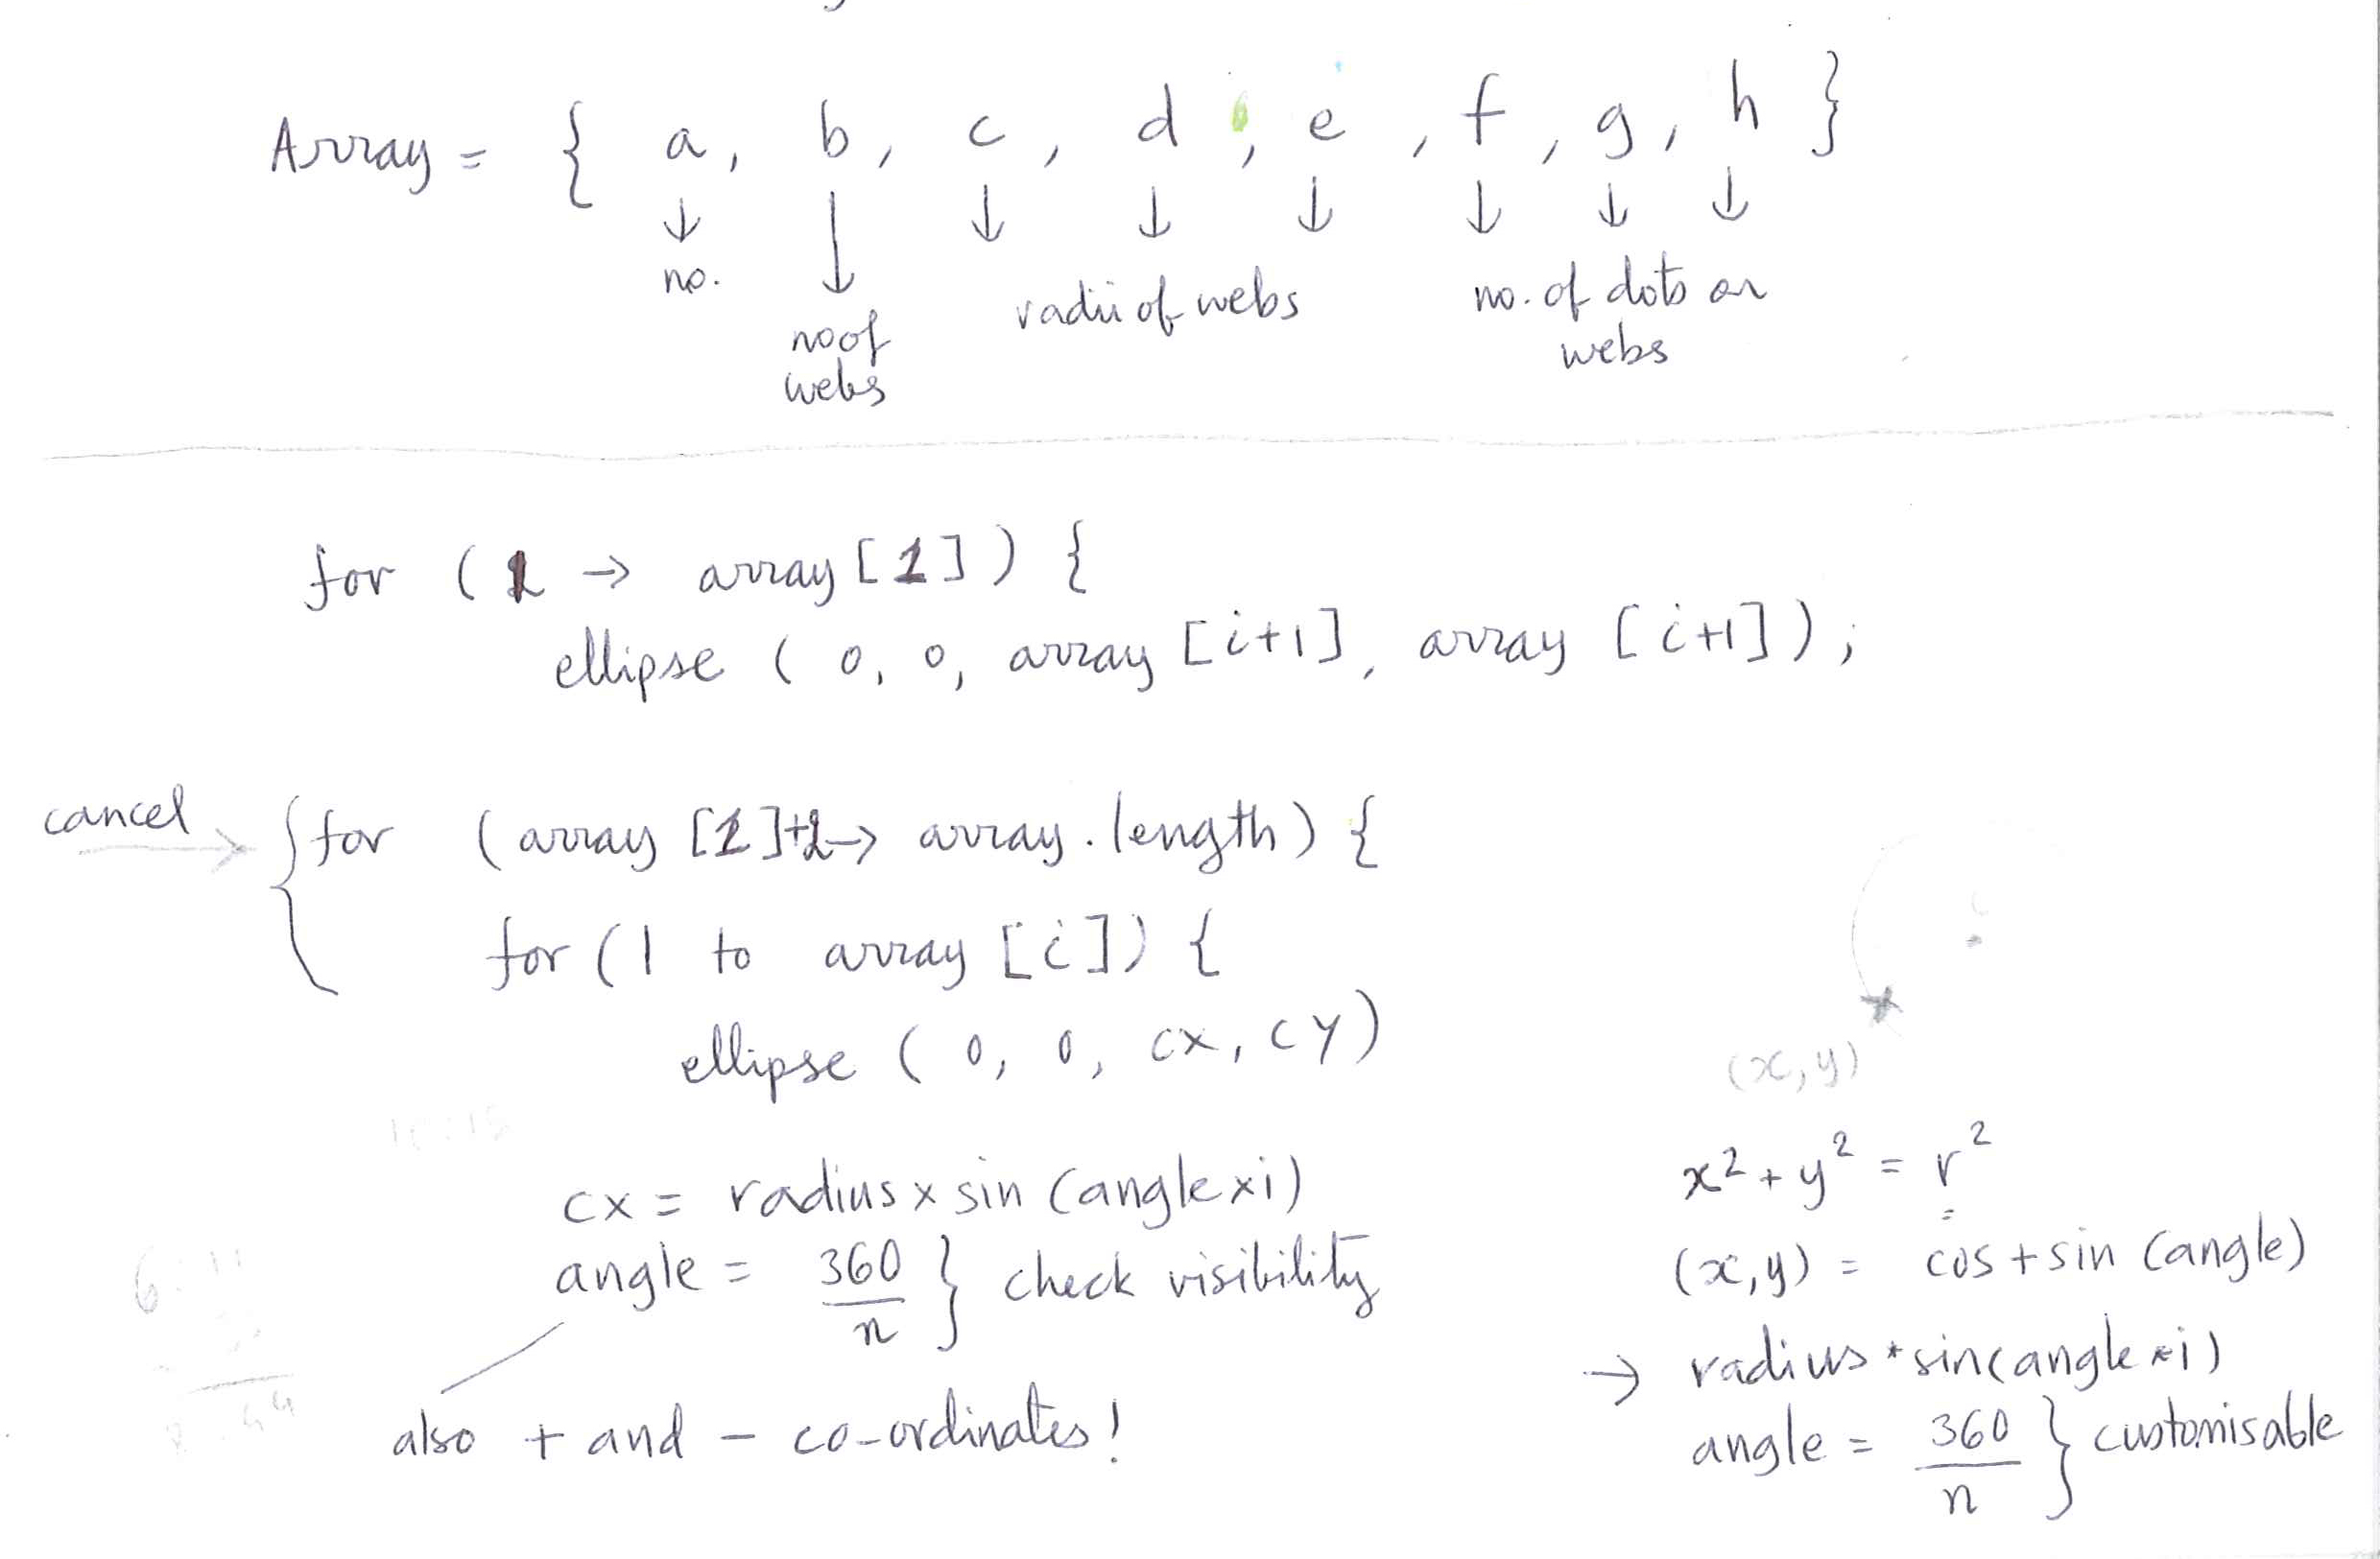 Array = { a, b, c, d, e, f, g, h }
↓ ↓ ↓ ↓ ↓ ↓ ↓ ↓
no.
no of
webs
radii of webs
no. of dots on
webs
for ( 1 → array [1] ) {
ellipse ( 0, 0, array [i+1], array [i+1] ) ;
cancel → { for ( array [1]+2 → array . length ) {
for ( 1 to array [i] ) {
ellipse ( 0, 0, cx, cy )
cx = radius x sin (angle x i)
angle = 360/n } check visibility
also + and - co-ordinates !
(x, y)
x² + y² = r²
(x, y) = cos + sin (angle)
→ radius * sin(angle * i)
angle = 360/n } customisable